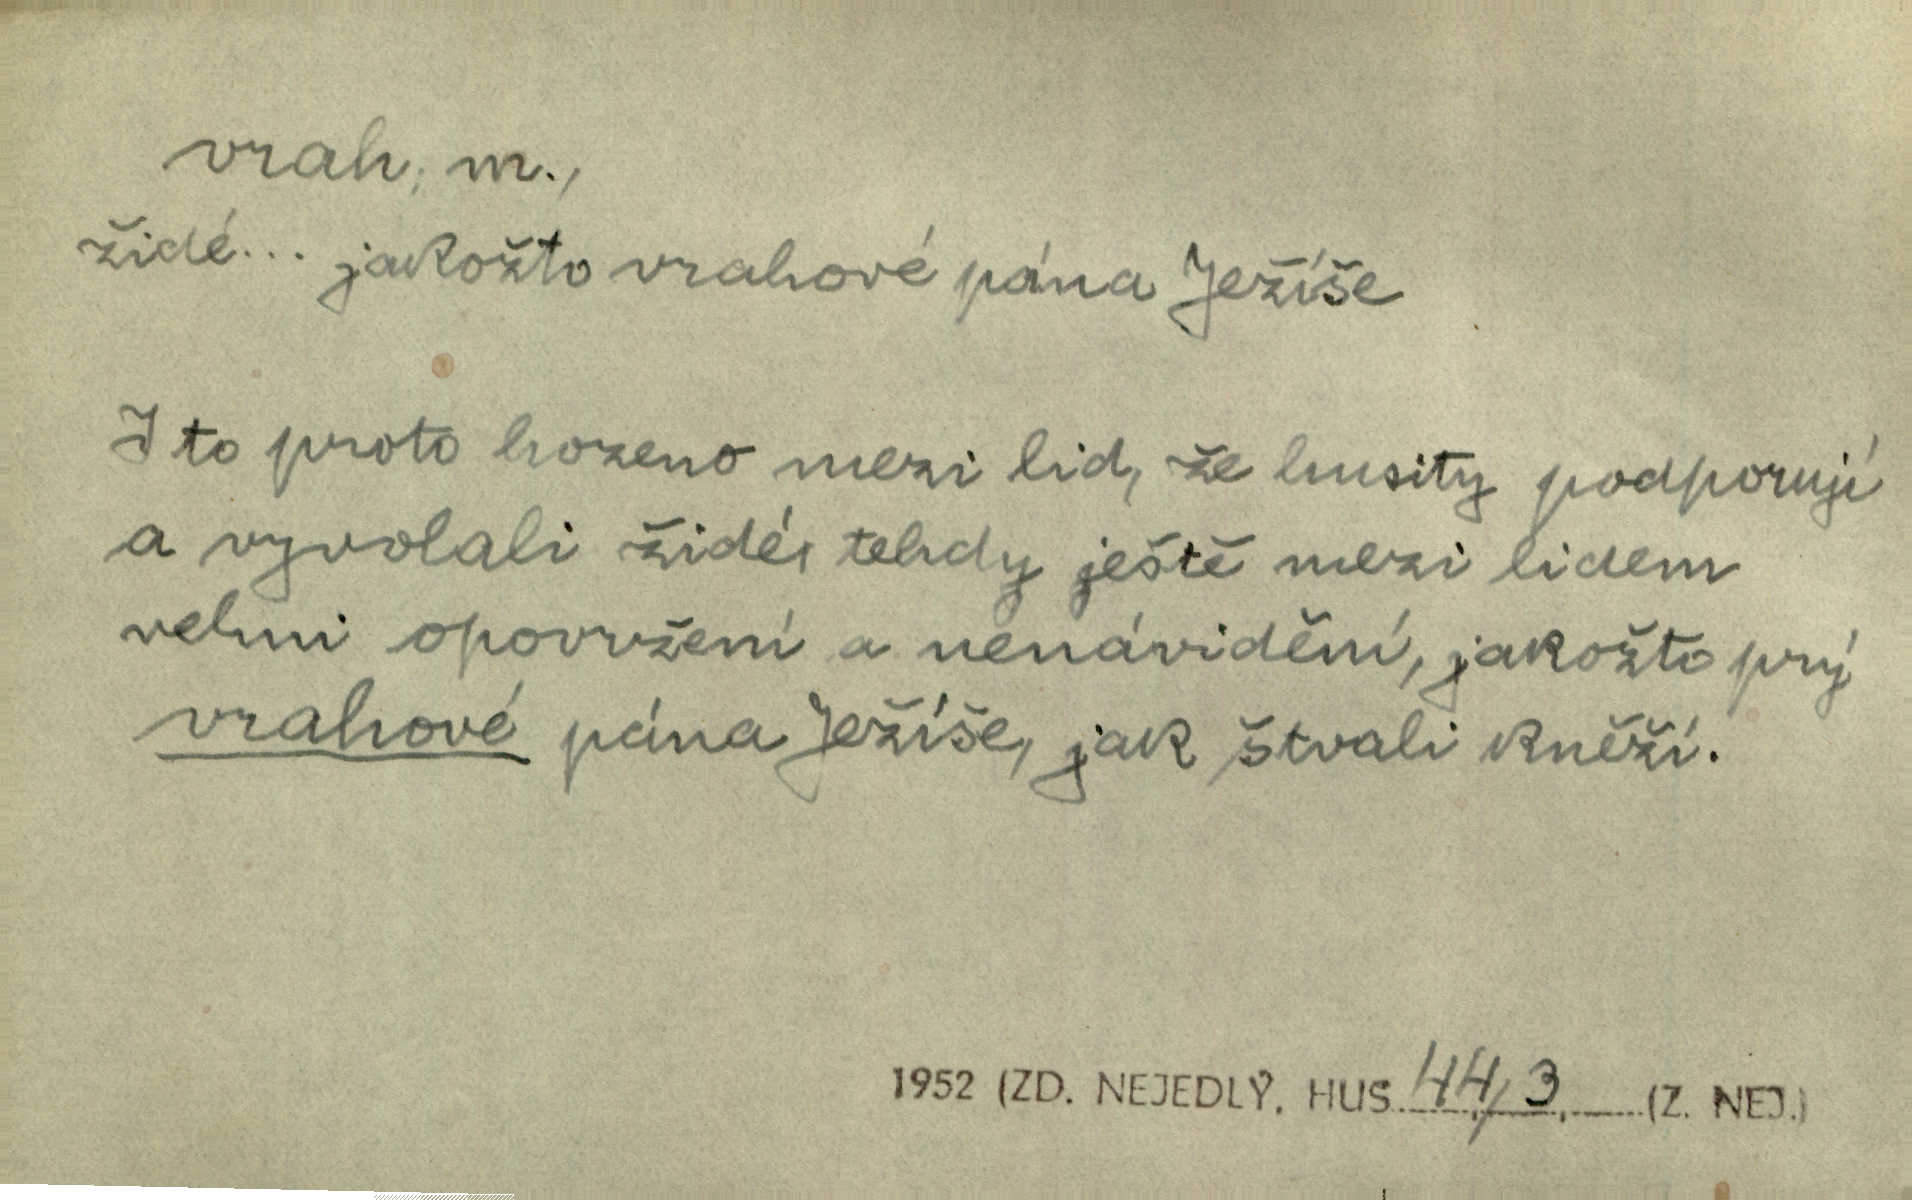 vrah, m.,
židé... jakožto vrahové pána Ježíše
I to proto hozeno mezi lid, že husity podporují
a vyvolali židé, tehdy ještě mezi lidem
velmi opovržení a nenávidění, jakožto prý
vrahové pána Ježíše, jak štvali kněží.
1952 (ZD. NEJEDLÝ, HUS 44, 3, (Z. NEJ.)